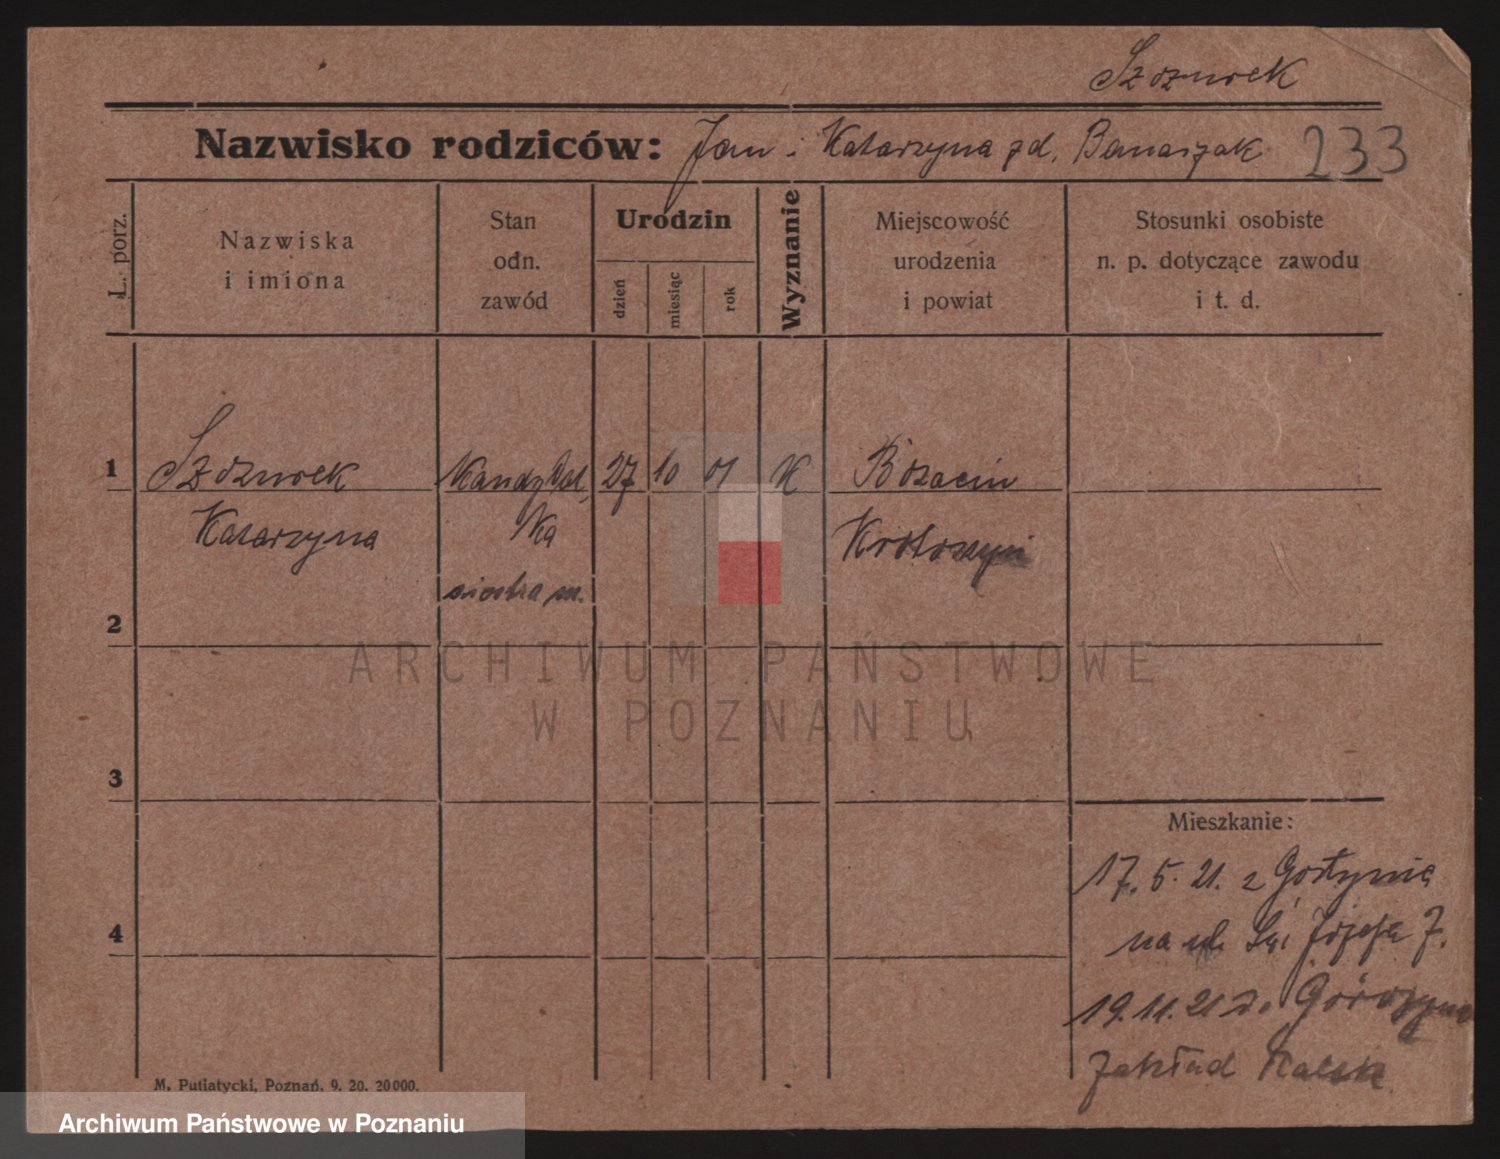 Szczurek
Nazwisko rodziców: Jan i Katarzyna zd. Banaszak 233
L. porz.
Nazwiska
i imiona
Stan
odn.
zawód
Urodzin
dzień
miesiąc
rok
Wyznanie
Miejscowość
urodzenia
i powiat
Stosunki osobiste
n. p. dotyczące zawodu
i t. d.
1 Szczurek Kandydat, 27 10 01 K Bożacin
Katarzyna ka Krotoszyn
siostra m.
2
3
4
Mieszkanie:
17. 5. 21. z Gostynia
na ul. Św. Józefa 7.
19. 11. 21 do
Zakład
M. Putiatycki, Poznań. 9. 20. 20000.
ARCHIWUM PAŃSTWOWE
W POZNANIU
Archiwum Państwowe w Poznaniu